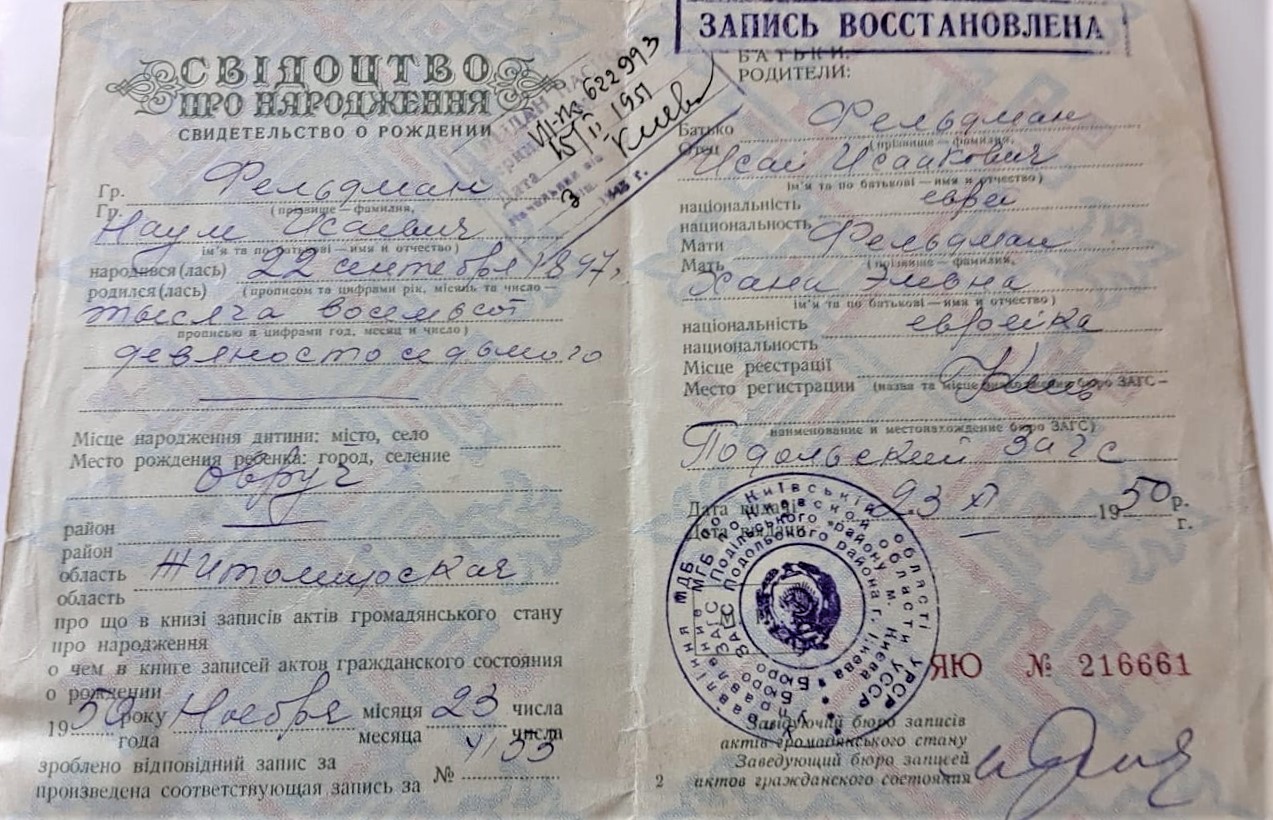 СВІДОЦТВО
ПРО НАРОДЖЕННЯ
СВИДЕТЕЛЬСТВО О РОЖДЕНИИ
VII-ПС 622993
15/II 1951
Киева
Гр.
Гр. Фельдман
(прізвище — фамилия,
Наум Исаевич
ім'я та по батькові — имя и отчество)
народився(лась) 22 сентября 1897,
родился(лась) (прописом та цифрами рік, місяць та число —
тысяча восемьсот
прописью и цифрами год, месяц и число)
девяносто седьмого
Місце народження дитини: місто, село
Место рождения ребенка: город, селение
Овруч
район
район
область Житомирская
область
про що в книзі записів актів громадянського стану
про народження
о чем в книге записей актов гражданского состояния
о рождении
1950 року Ноября місяця 23 числа
года месяца числа
зроблено відповідний запис за № 4133
произведена соответствующая запись за
ЗАПИСЬ ВОССТАНОВЛЕНА
БАТЬКИ:
РОДИТЕЛИ:
Батько Фельдман
Отец (прізвище — фамилия,
Исай Исаакович
ім'я та по батькові — имя и отчество)
національність еврей
национальность
Мати Фельдман
Мать (прізвище — фамилия,
Хана Элевна
ім'я та по батькові — имя и отчество)
національність еврейка
национальность
Місце реєстрації Киев
Место регистрации (назва та місцезнаходження бюро ЗАГС —
наименование и местонахождение бюро ЗАГС)
Подольский Загс
Дата видачі 23 XI 1950 р.
Дата выдачи г.
Управління МДБ по Київській області УРСР
Управление МГБ по Киевской области УССР
Бюро ЗАГС Подільського району м. Києва
Бюро ЗАГС Подольского района г. Киева
ЯЮ № 216661
Завідуючий бюро записів
актів громадянського стану
Заведующий бюро записей
2 актов гражданского состояния